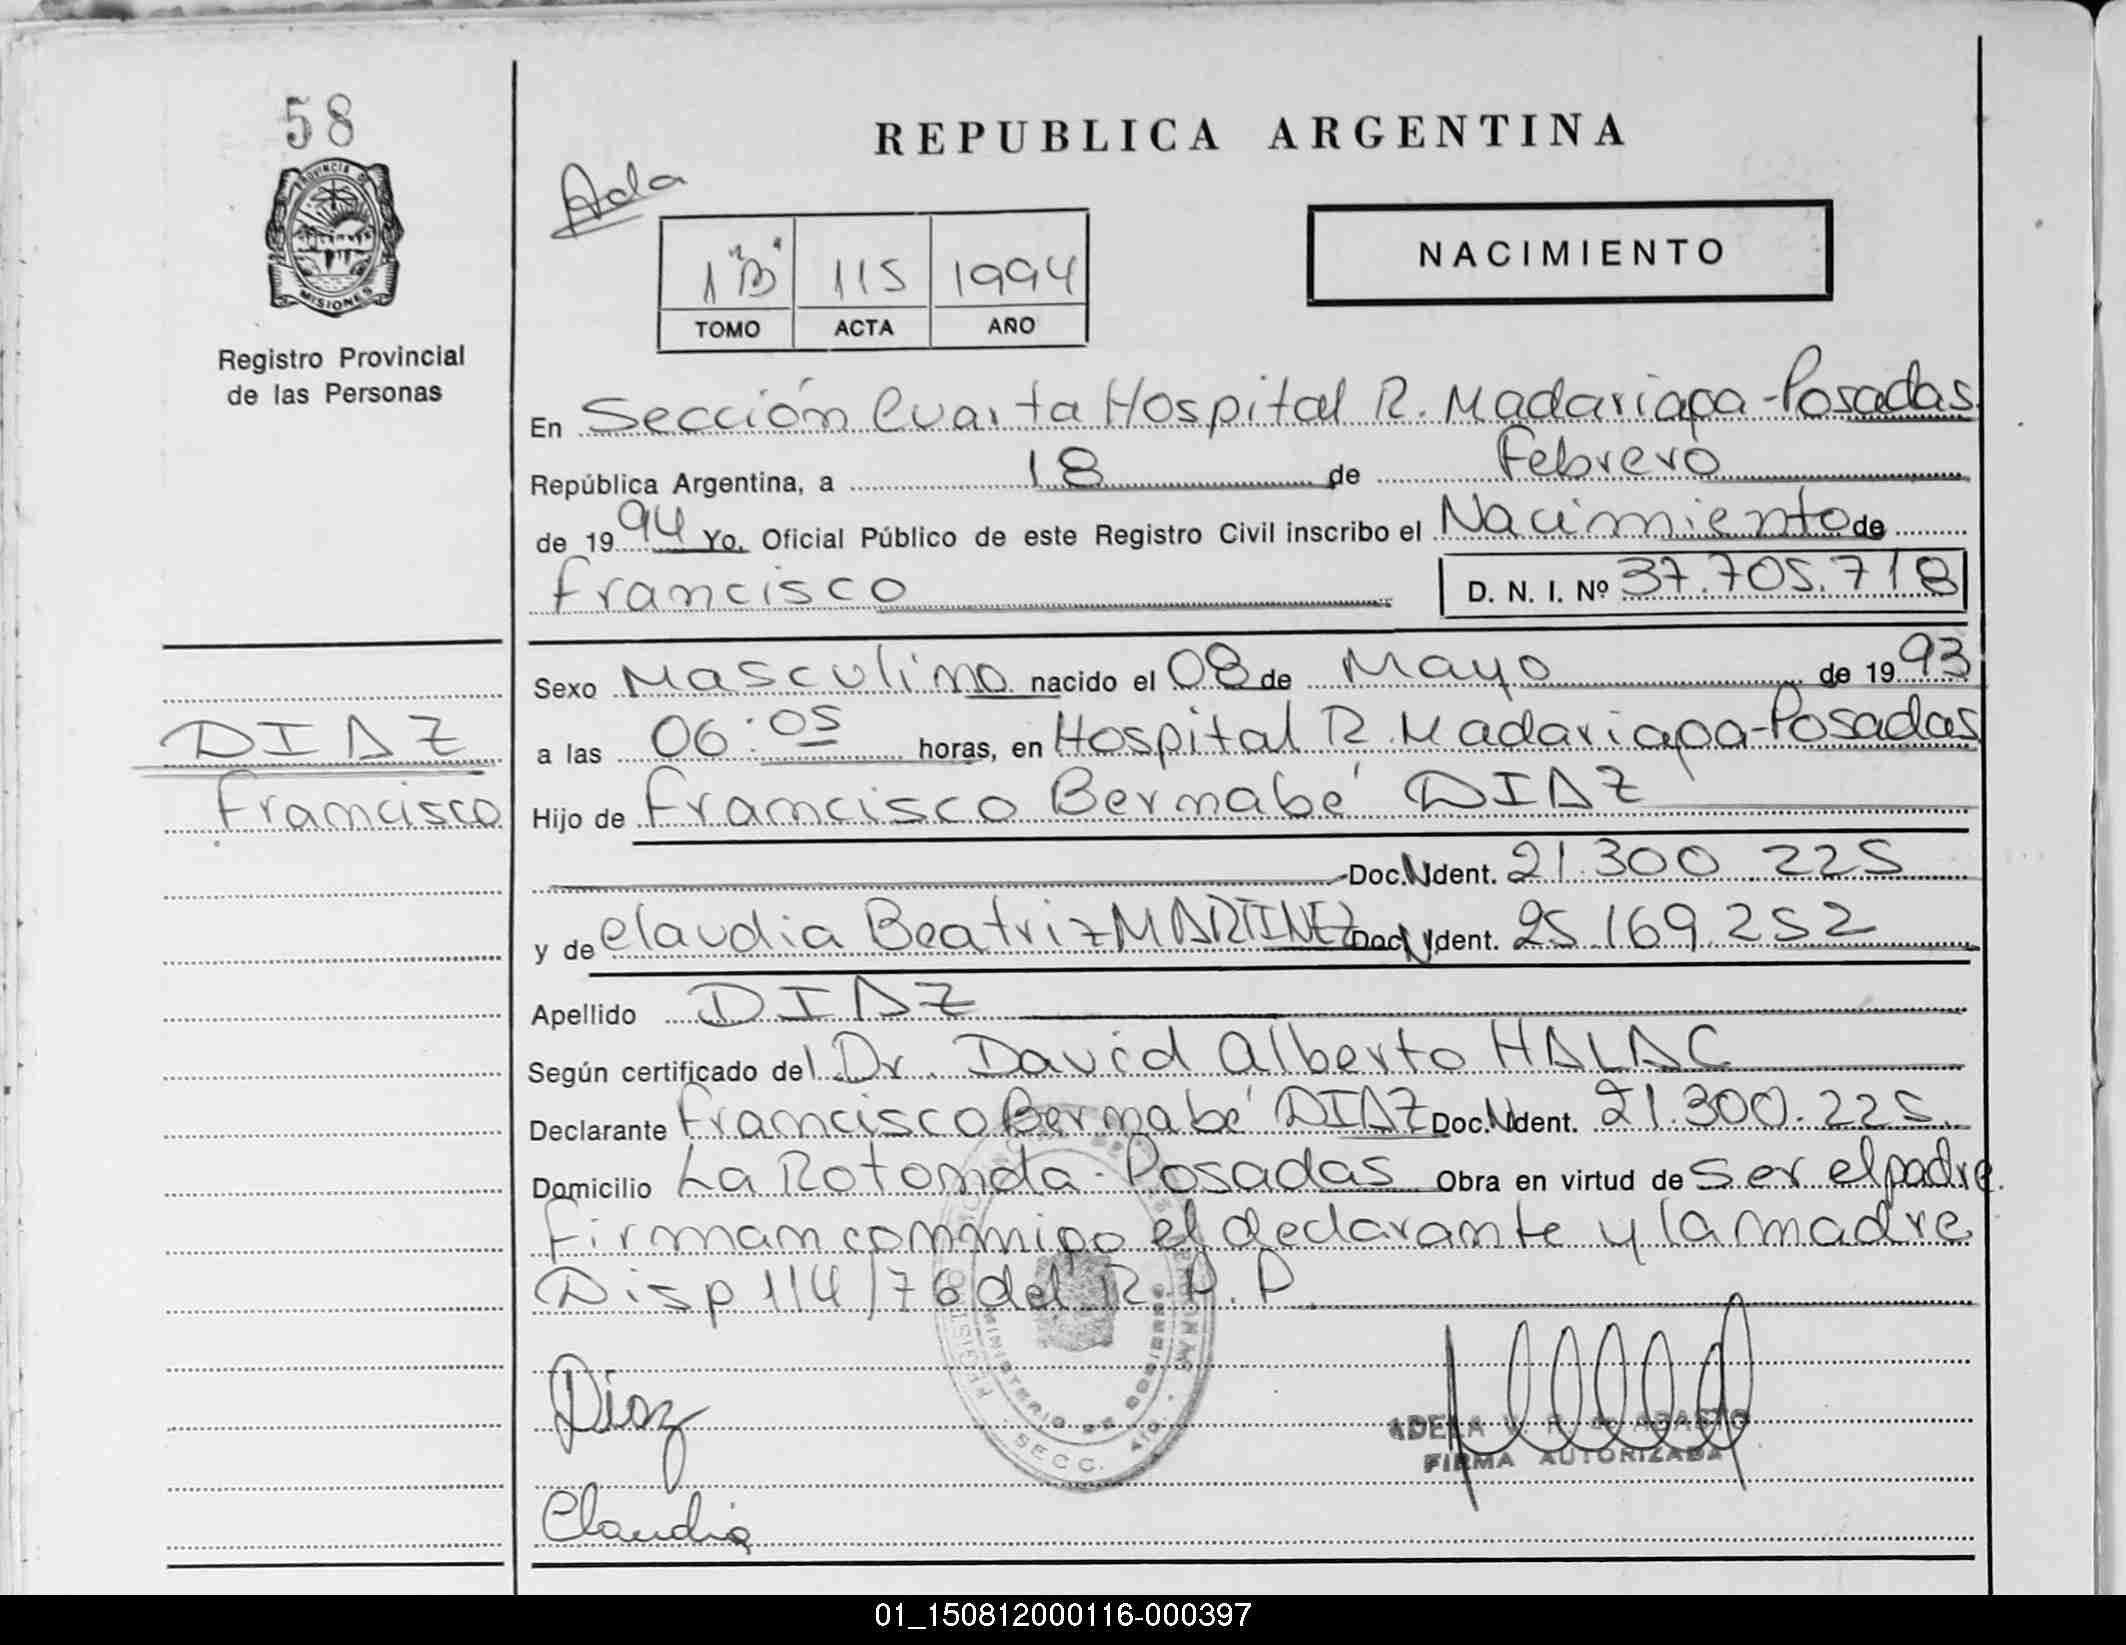 58
PROVINCIA DE
MISIONES
Registro Provincial
de las Personas
DIAZ
Francisco
REPUBLICA ARGENTINA
Ada
1"B" 115 1994
TOMO ACTA AÑO
NACIMIENTO
En Sección Cuarta Hospital R. Madariaga-Posadas
República Argentina, a 18 de Febrero
de 1994 Yo, Oficial Público de este Registro Civil inscribo el Nacimiento de
Francisco D. N. I. Nº 37.705.718
Sexo Masculino nacido el 08 de Mayo de 1993
a las 06:05 horas, en Hospital R. Madariaga-Posadas
Hijo de Francisco Bernabé DIAZ
Doc. Ndent. 21.300.225
y de Claudia Beatriz MARTINEZ Doc. Ndent. 25.169.252
Apellido DIAZ
Según certificado del Dr. David Alberto HALAC
Declarante Francisco Bernabé DIAZ Doc. Ndent. 21.300.225
Domicilio La Rotonda - Posadas Obra en virtud de ser el padre.
Firman conmigo el declarante y la madre
Disp 114/76 del R. P. P.
MINISTERIO DE GOBIERNO
SECC. 4TO.
Díaz
ADELA V. R. de ABASTO
FIRMA AUTORIZADA
Claudia
01_150812000116-000397